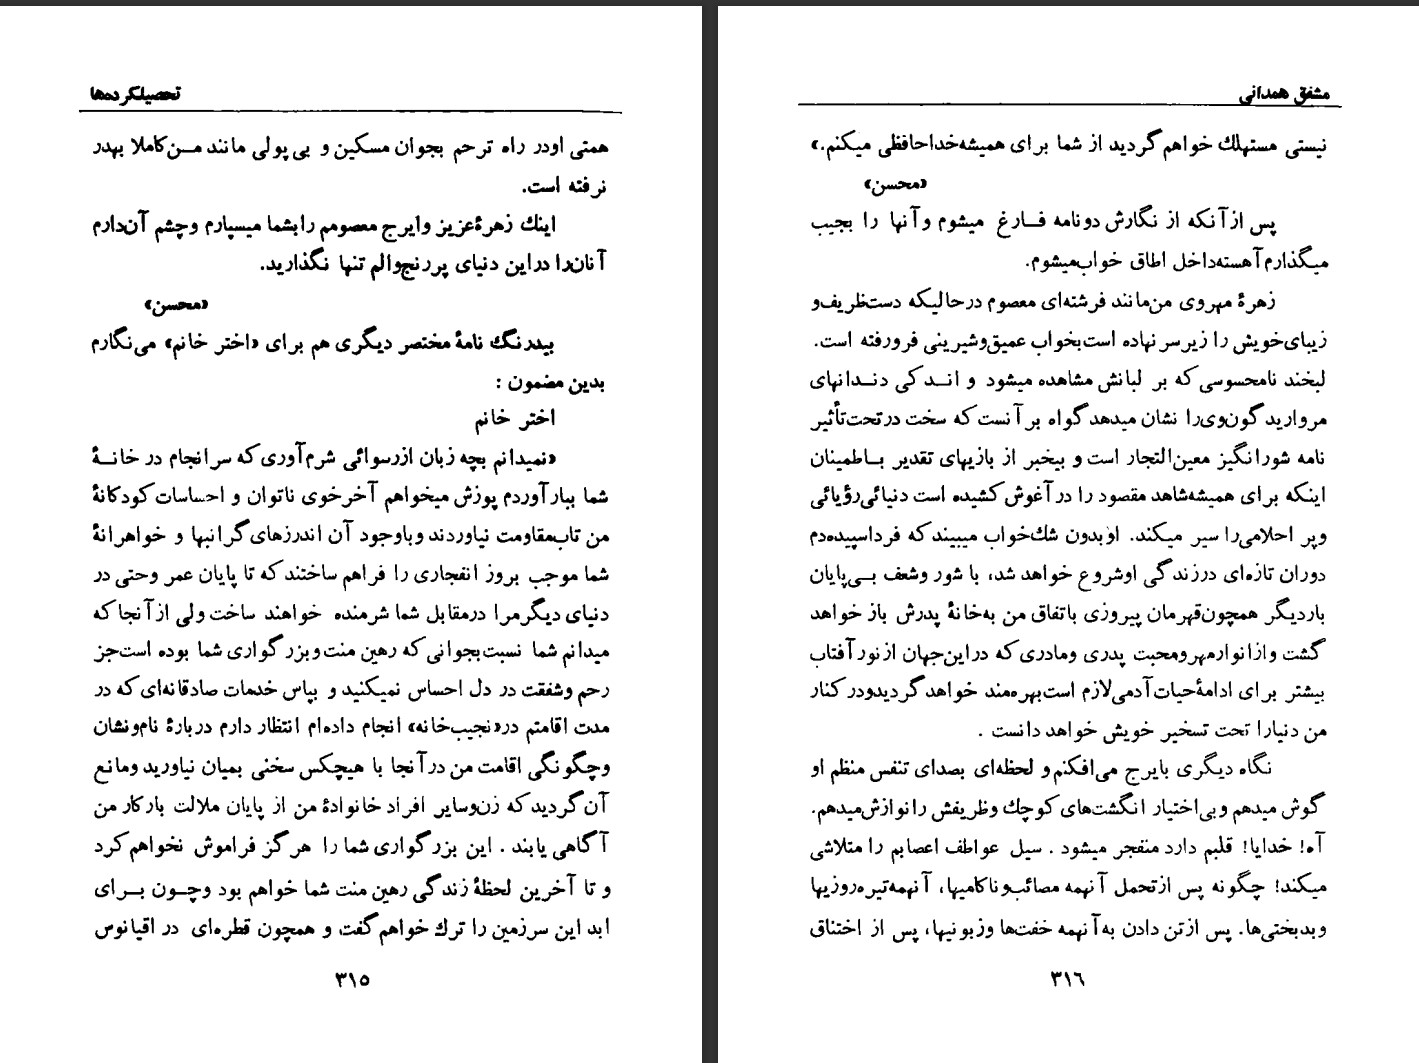 تحصیلکرده‌ها
همتی اودر راه ترحم بجوان مسکین و بی‌پولی مانند مـن کاملا بهدر
نرفته است.
اینك زهرهٔ عزیز وایرج معصومم را بشما میسپارم وچشم آن‌دارم
آنان‌را دراین دنیای پررنج‌والم تنها نگذارید.
«محسن»
بیدرنگ نامهٔ مختصر دیگری هم برای «اختر خانم» می‌نگارم
بدین مضمون :
اختر خانم
«نمیدانم بچه زبان ازرسوائی شرم‌آوری که سرانجام در خانـهٔ
شما ببار آوردم پوزش میخواهم آخرخوی ناتوان و احساسات کودکانهٔ
من تاب‌مقاومت نیاوردند وباوجود آن اندرزهای گرانبها و خواهرانهٔ
شما موجب بروز انفجاری را فراهم ساختند که تا پایان عمر وحتی در
دنیای دیگر مرا درمقابل شما شرمنده خواهند ساخت ولی ازآنجا که
میدانم شما نسبت بجوانی که رهین منت وبزرگواری شما بوده است‌جز
رحم وشفقت در دل احساس نمیکنید و بپاس خدمات صادقانه‌ای که در
مدت اقامتم در«نجیب‌خانه» انجام داده‌ام انتظار دارم دربارهٔ نام‌ونشان
وچگونگی اقامت من درآنجا با هیچکس سخنی بمیان نیاورید ومانع
آن گردید که زن‌وسایر افراد خانوادهٔ من از پایان ملالت بارکار من
آگاهی یابند . این بزرگواری شما را هرگز فراموش نخواهم کرد
و تا آخرین لحظهٔ زندگی رهین منت شما خواهم بود وچـون بـرای
ابد این سرزمین را ترك خواهم گفت و همچون قطره‌ای در اقیانوس
۳۱۵
مشفق همدانی
نیستی مستهلك خواهم گردید از شما برای همیشه خداحافظی میکنم.»
«محسن»
پس ازآنکه از نگارش دونامه فـارغ میشوم وآنها را بجیب
میگذارم آهسته‌داخل اطاق خواب‌میشوم.
زهرهٔ مهروی من‌مانند فرشته‌ای معصوم درحالیکه دست‌ظریف‌و
زیبای‌خویش را زیرسر نهاده است‌بخواب عمیق‌وشیرینی فرورفته است.
لبخند نامحسوسی که بر لبانش مشاهده میشود و انـدکی دنـدانهای
مروارید گون‌وی‌را نشان میدهد گواه برآنست که سخت درتحت‌تأثیر
نامه شورانگیز معین‌التجار است و بیخبر از بازیهای تقدیر بـاطمینان
اینکه برای همیشه‌شاهد مقصود را درآغوش کشیده است دنیائی‌رؤیائی
وپر احلامی‌را سیر میکند. اوبدون شك‌خواب میبیند که فردا سپیده‌دم
دوران تازه‌ای درزندگی اوشروع خواهد شد، با شور وشعف بـی‌پایان
باردیگر همچون‌قهرمان پیروزی باتفاق من به‌خانهٔ پدرش باز خواهد
گشت وازانوارمهرومحبت پدری ومادری که دراین‌جهان ازنورآفتاب
بیشتر برای ادامهٔ‌حیات‌آدمی‌لازم است‌بهره‌مند خواهدگردیدودرکنار
من دنیارا تحت تسخیر خویش خواهد دانست .
نگاه دیگری بایرج می‌افکنم و لحظه‌ای بصدای تنفس منظم او
گوش میدهم وبی‌اختیار انگشت‌های کوچك وظریفش رانوازش‌میدهم.
آه! خدایا! قلبم دارد منفجر میشود . سیل عواطف اعصابم را متلاشی
میکند! چگونه پس ازتحمل آنهمه مصائب‌وناکامیها، آنهمه‌تیره‌روزیها
وبدبختی‌ها. پس ازتن دادن به‌آنهمه خفت‌ها وزبونیها، پس از اختناق
۳۱۶